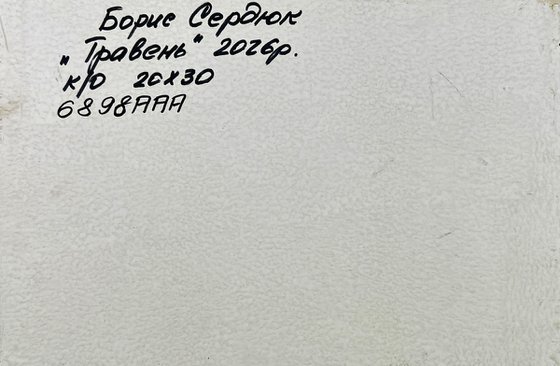 Борис Сердюк
„Травень" 2026р.
к/о 20х30
6898ААА